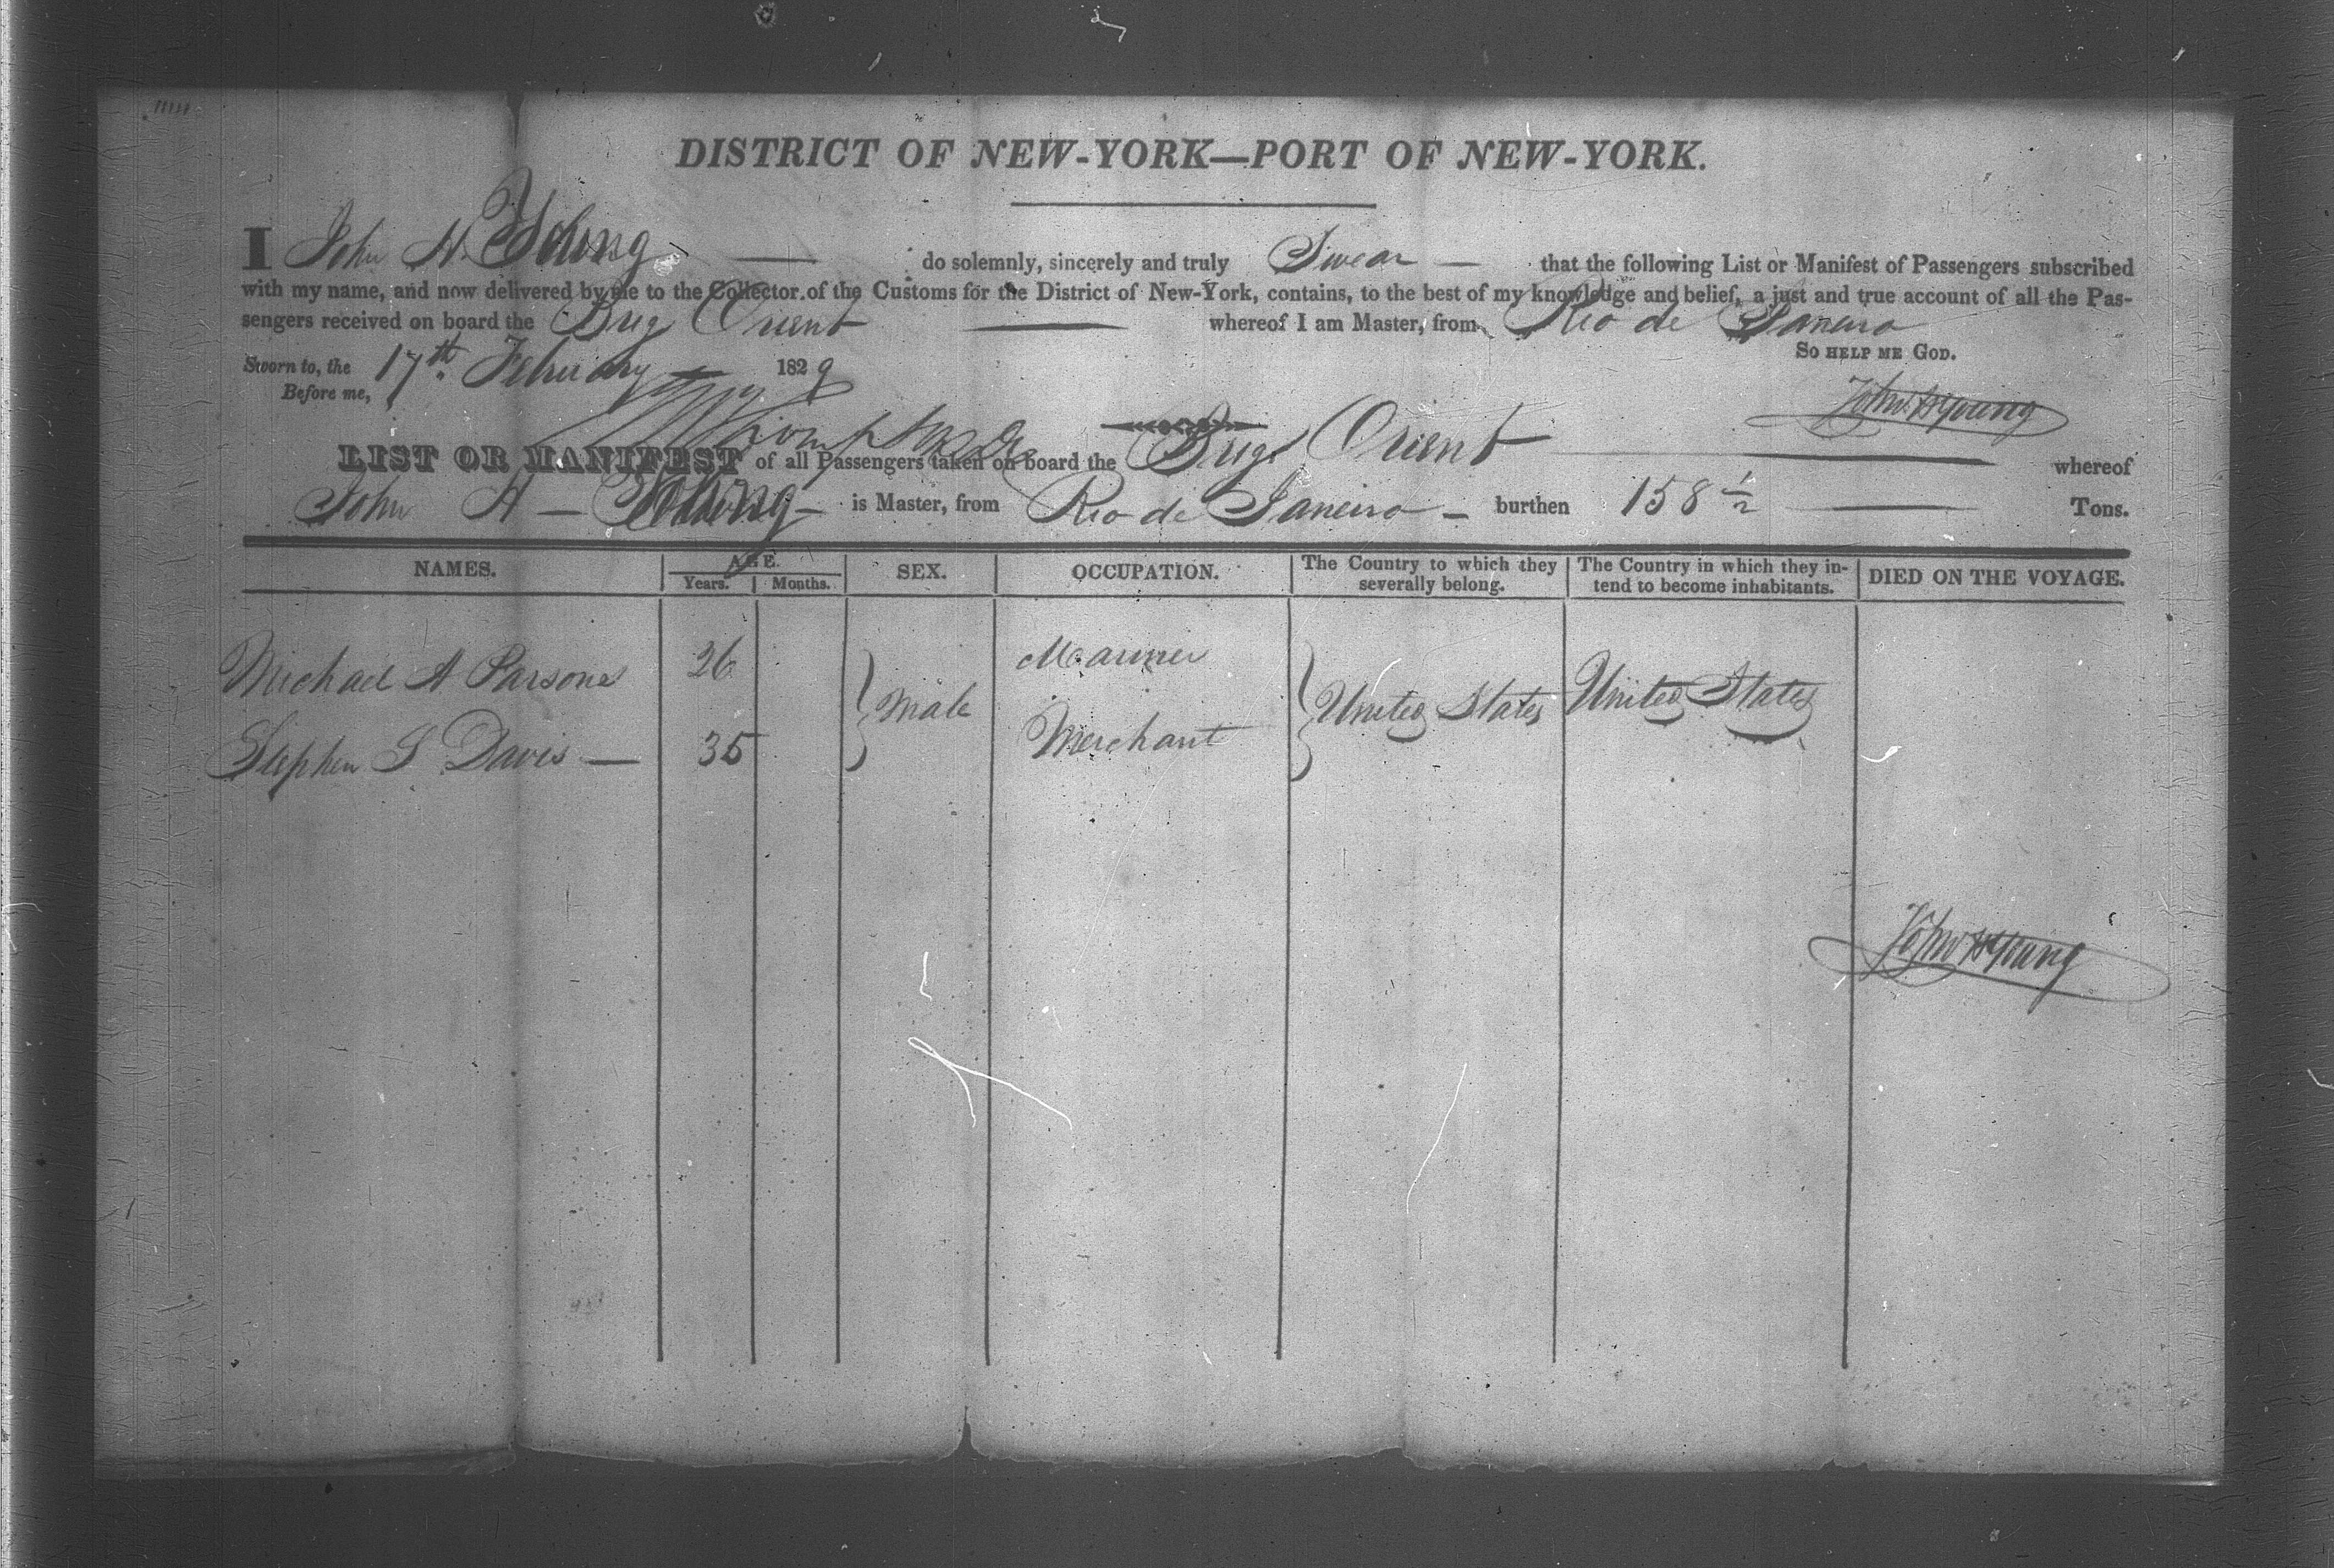 DISTRICT OF NEW-YORK—PORT OF NEW-YORK.
I John H. Young — do solemnly, sincerely and truly Swear — that the following List or Manifest of Passengers subscribed
with my name, and now delivered by me to the Collector of the Customs for the District of New-York, contains, to the best of my knowledge and belief, a just and true account of all the Pas-
sengers received on board the Brig Orient — whereof I am Master, from Rio de Janeiro
So HELP ME GOD.
Sworn to, the 17th February — 1829
Before me,
John H Young
LIST OR MANIFEST of all Passengers taken on board the Brig Orient — whereof
John H — Young — is Master, from Rio de Janeiro — burthen 158 1/2 — Tons.
NAMES. AGE. SEX. OCCUPATION. The Country to which they severally belong. The Country in which they in-tend to become inhabitants. DIED ON THE VOYAGE.
Years. Months.
Michael A Parsons 26 Male Mariner United States United States
Stephen S Davis — 35 Merchant
John H Young